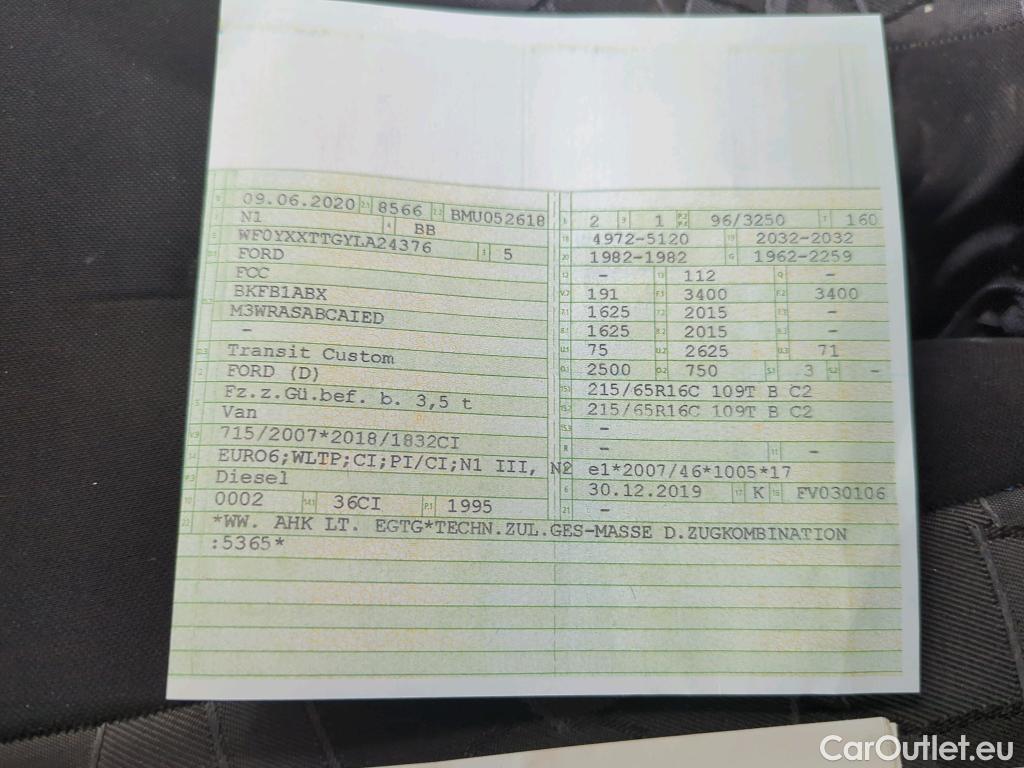 09.06.2020 8566 BMU052618
N1 BB
WF0YXXTTGYLA24376 5
FORD
FCC
BKFB1ABX
M3WRASABCAIED
-
Transit Custom
FORD (D)
Fz.z.Gü.bef. b. 3,5 t
Van
715/2007*2018/1832CI
EURO6;WLTP;CI;PI/CI;N1 III, N2
Diesel
0002 14.1 36CI P.1 1995
2 1 96/3250 T 160
18 4972-5120 19 2032-2032
20 1982-1982 G 1962-2259
12 - 13 112 Q -
V.7 191 F.1 3400 F.2 3400
7.1 1625 7.2 2015 7.3 -
8.1 1625 8.2 2015 8.3 -
U.1 75 U.2 2625 U.3 71
O.1 2500 O.2 750 S.1 3 S.2 -
15.1 215/65R16C 109T B C2
15.2 215/65R16C 109T B C2
15.3 -
R - 11 -
e1*2007/46*1005*17
6 30.12.2019 17 K 16 FV030106
21 -
22 *WW. AHK LT. EGTG*TECHN.ZUL.GES-MASSE D.ZUGKOMBINATION
:5365*
CarOutlet.eu